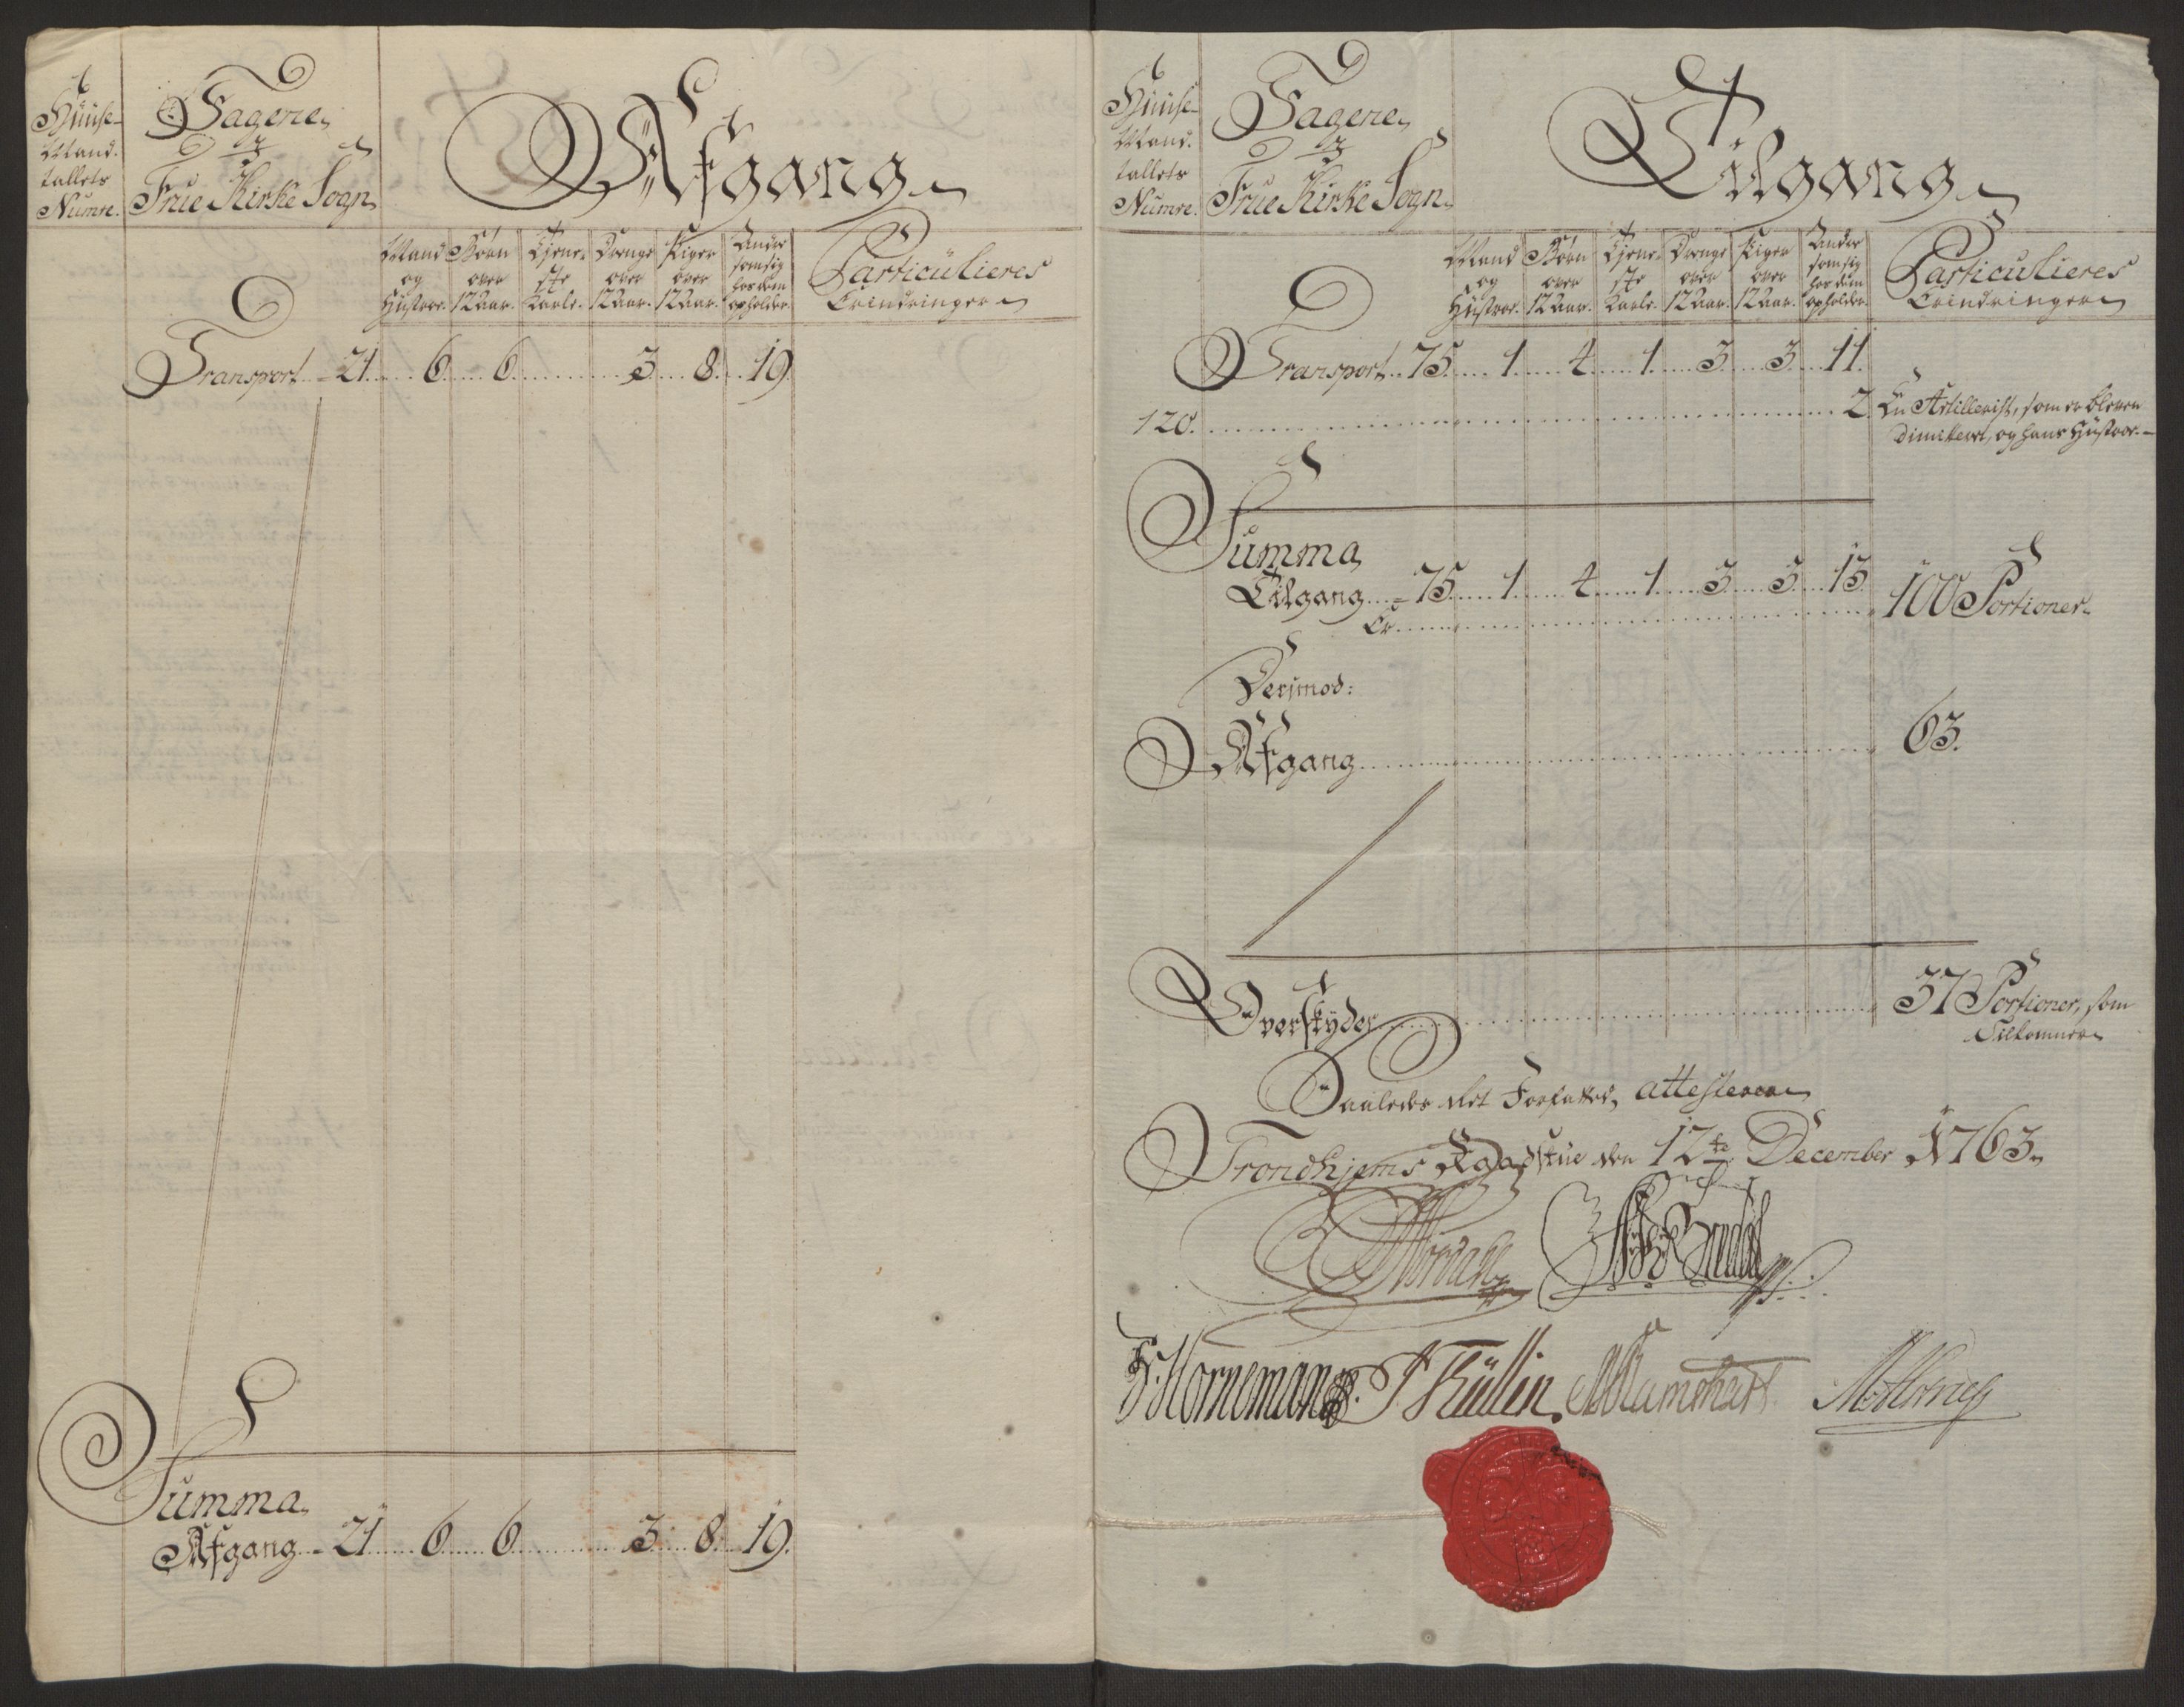 Huuse-
Mand-
tallets
Numre.
Tagene
i
Frue Kirke Sogn
Afgang
Mand
og
Hustroe.
Børn
over
12 Aar.
Tjene-
ste
Karle.
Drenge
over
12 Aar.
Piger
over
12 Aar.
Andre
som sig
hos dem
opholder.
Particulieres
Erindringer
Transport 21 6 6 3 8 19
Summa
Afgang 21 6 6 3 8 19
Huuse-
Mand.
tallets
Numre.
Tagene
i
Frue Kirke Sogn
Tilgang
Mand
og
Hustroe.
Børn
over
12 Aar.
Tjene-
ste
Karle.
Drenge
over
12 Aar.
Piger
over
12 Aar.
Andre
som sig
hos dem
opholder.
Particulieres
Erindringer
Transport 75 1 4 1 3 3 11
120. 2 En Artillerist, som er bleven
dimiteret, og hans Hustroe.
Summa
Tilgang 75 1 4 1 3 3 13 100 Portioner
Er
Derimod:
Afgang 63.
Overskyder 37 Portioner, som
Tilkommer
Saaledes Rett Forfattet, attesterer
Trondhjems Raadstue den 12te December 1763
H. Hornemann